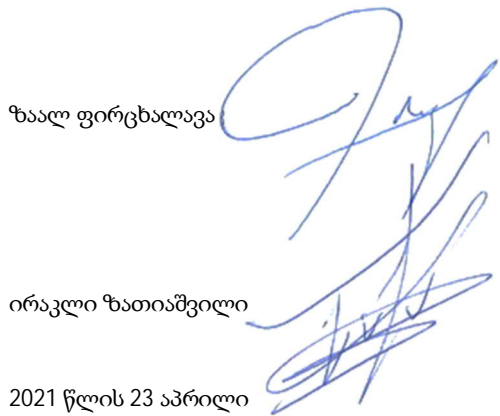 ზაალ ფირცხალავა
ირაკლი ზათიაშვილი
2021 წლის 23 აპრილი